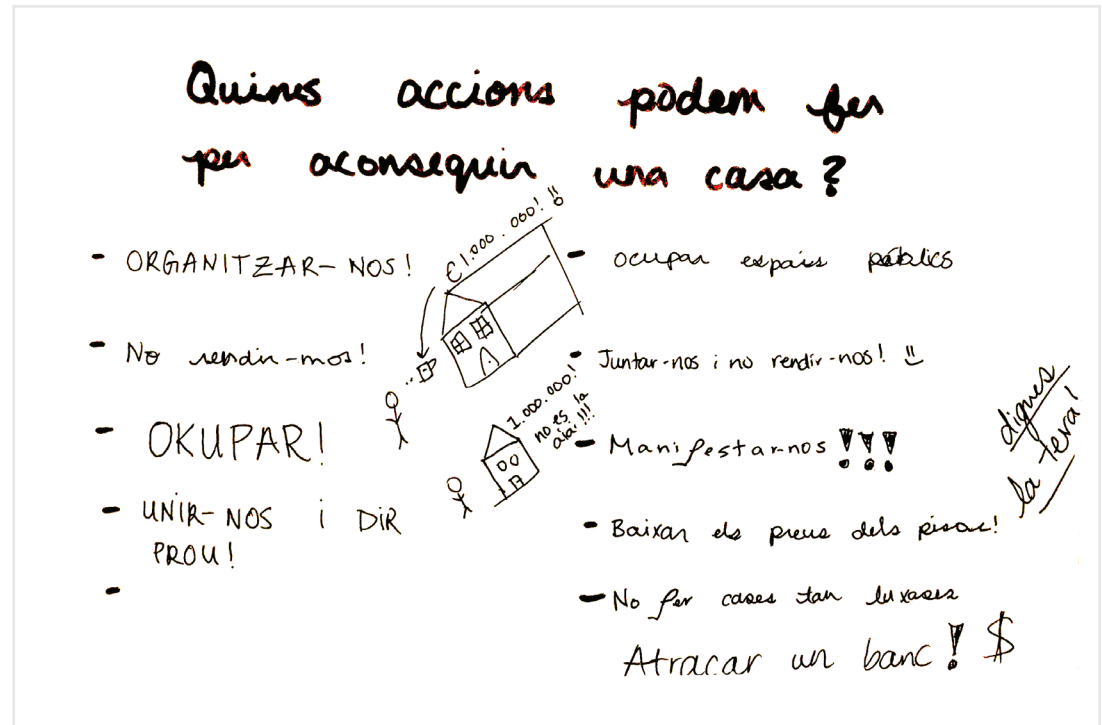 Quines accions podem fer
per aconseguir una casa?
- ORGANITZAR-NOS!
- No rendir-mos!
- OKUPAR!
- UNIR-NOS i DIR
PROU!
-
€1.000.000!!!
1.000.000!
no es la
- ocupar espais públics
- Juntar-nos i no rendir-nos!
- Manifestar-nos !!!
- Baixar els preus dels pisos!
- No fer cases tan luxoses
Atracar un banc! $
digues
la teva!